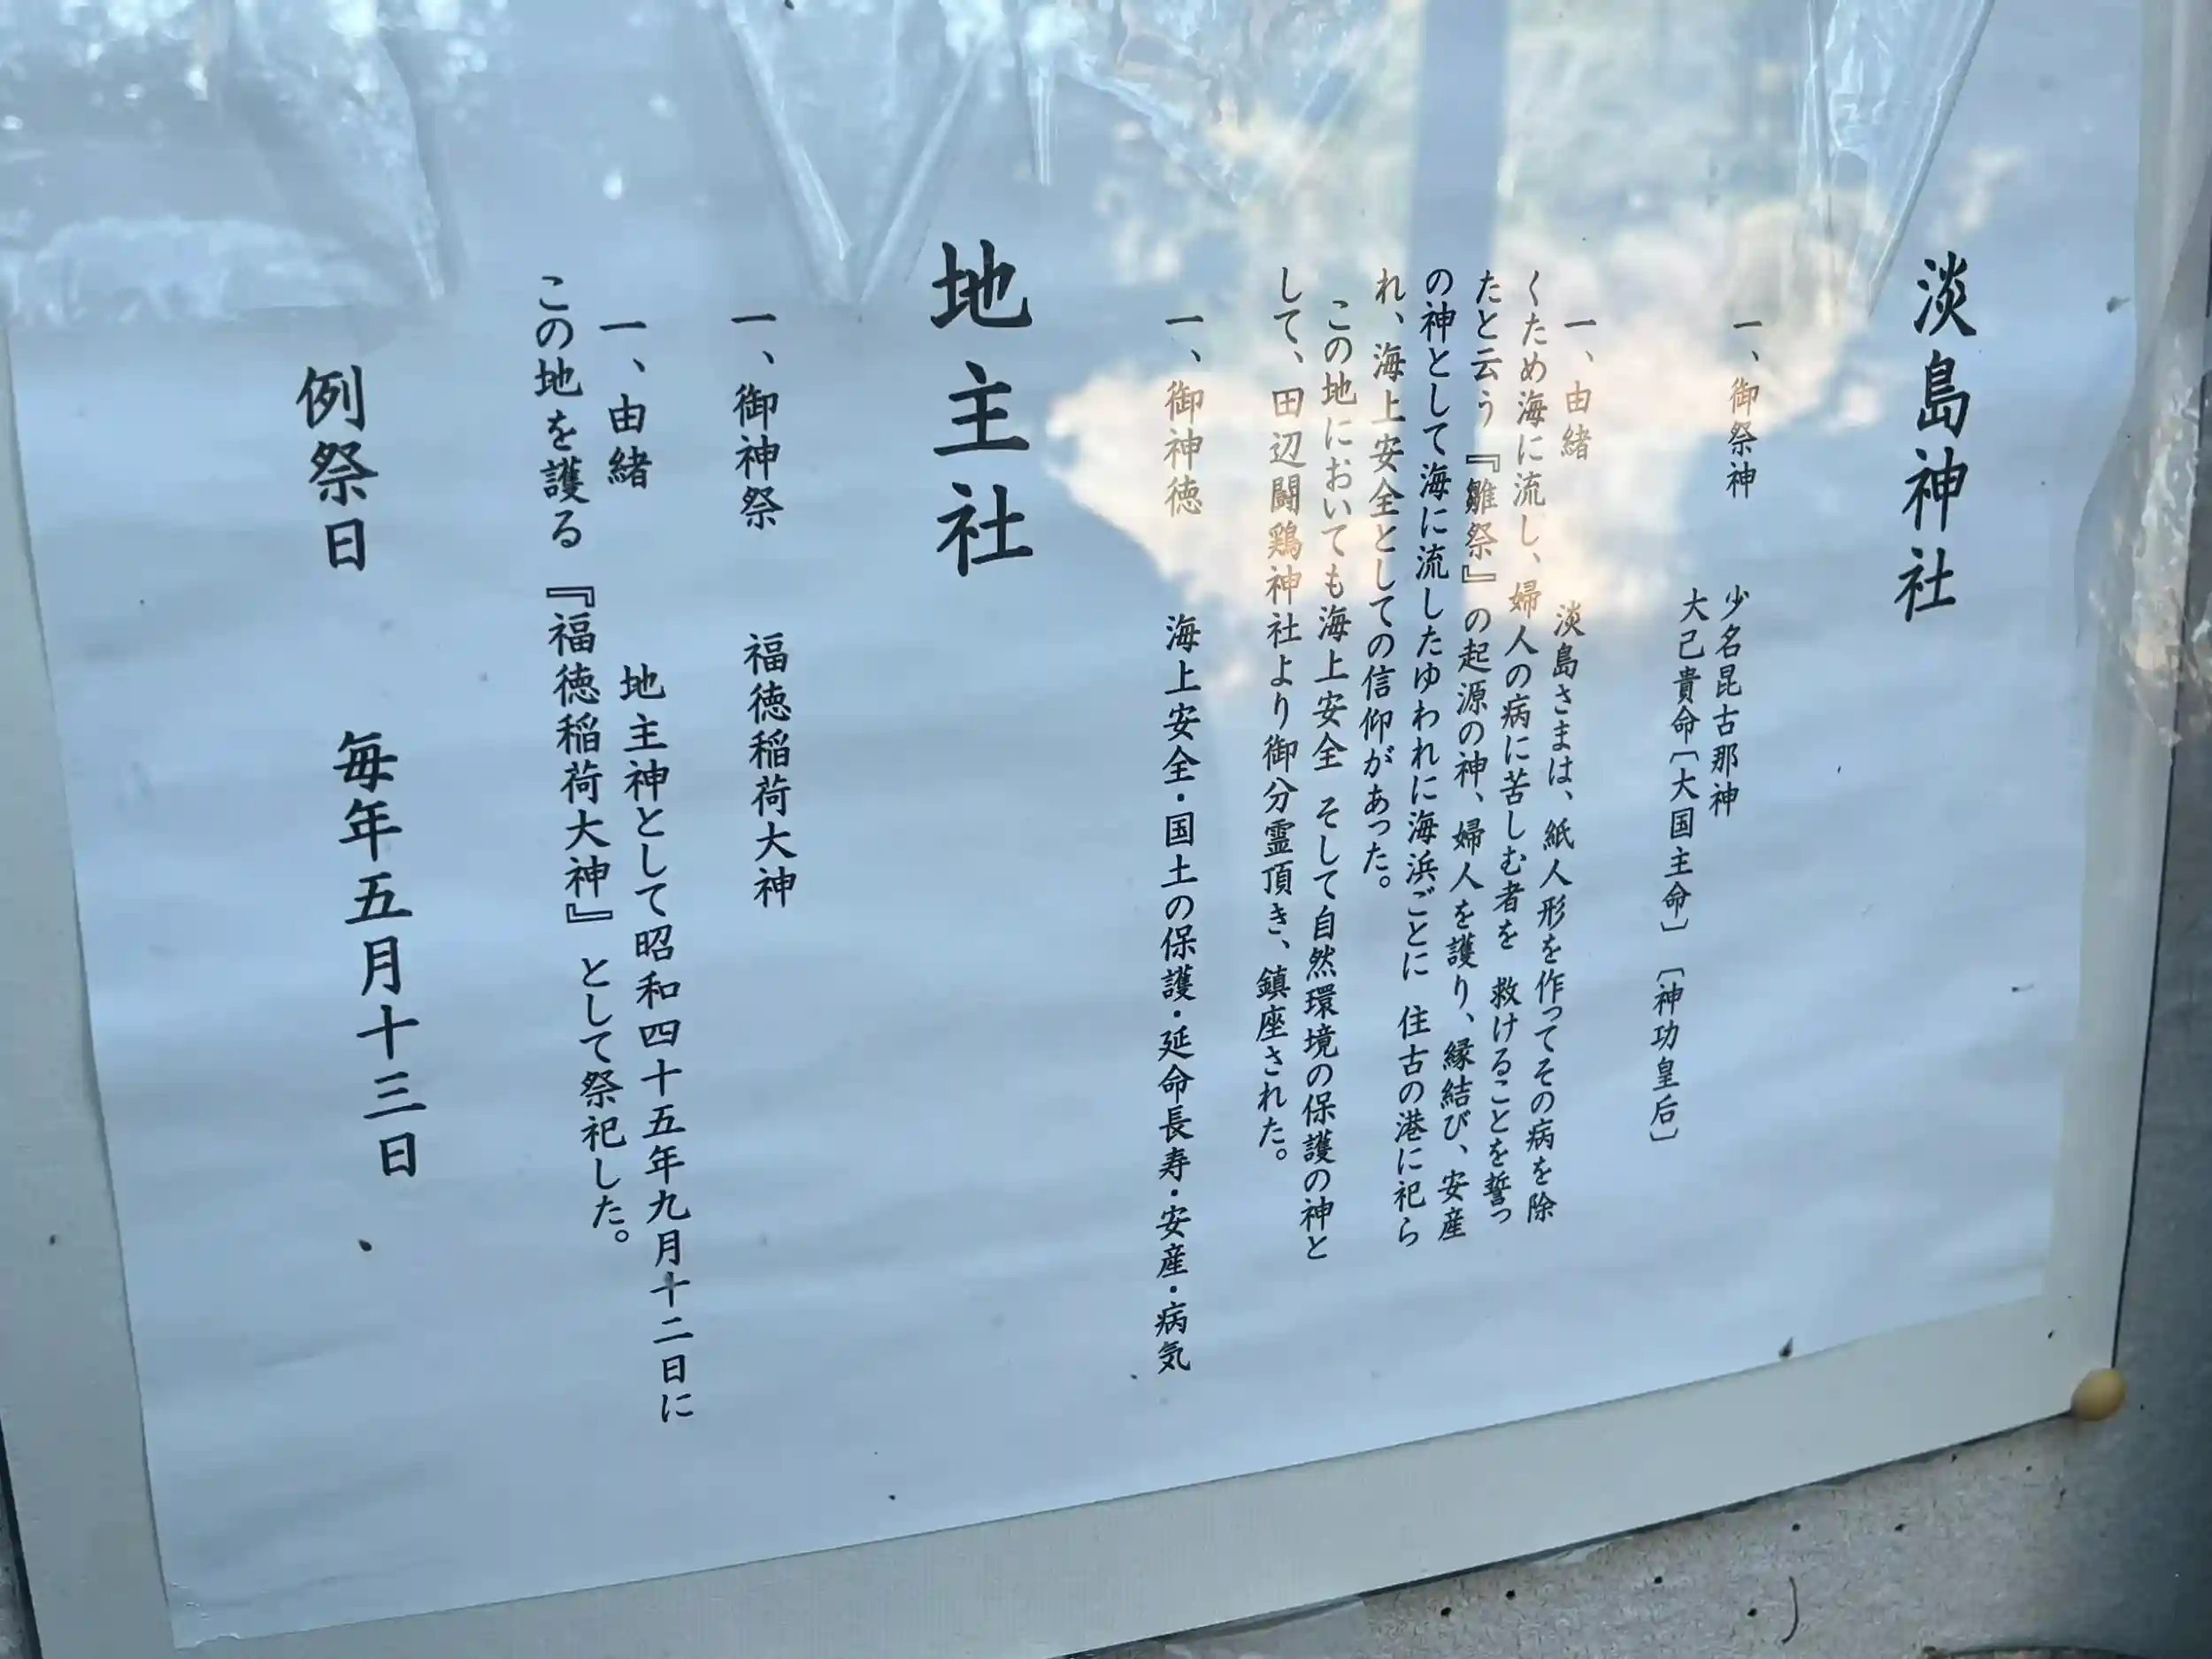 淡島神社
一、御祭神　少名昆古那神
大己貴命〔大国主命〕〔神功皇后〕
一、由緒　淡島さまは、紙人形を作ってその病を除
くため海に流し、婦人の病に苦しむ者を 救けることを誓っ
たと云う『雛祭』の起源の神、婦人を護り、縁結び、安産
の神として海に流したゆわれに海浜ごとに 住古の港に祀ら
れ、海上安全としての信仰があった。
この地においても海上安全 そして自然環境の保護の神と
して、田辺闘鶏神社より御分霊頂き、鎮座された。
一、御神徳　海上安全・国土の保護・延命長寿・安産・病気
地主社
一、御神祭　福徳稲荷大神
一、由緒　地主神として昭和四十五年九月十二日に
この地を護る『福徳稲荷大神』として祭祀した。
例祭日　毎年五月十三日